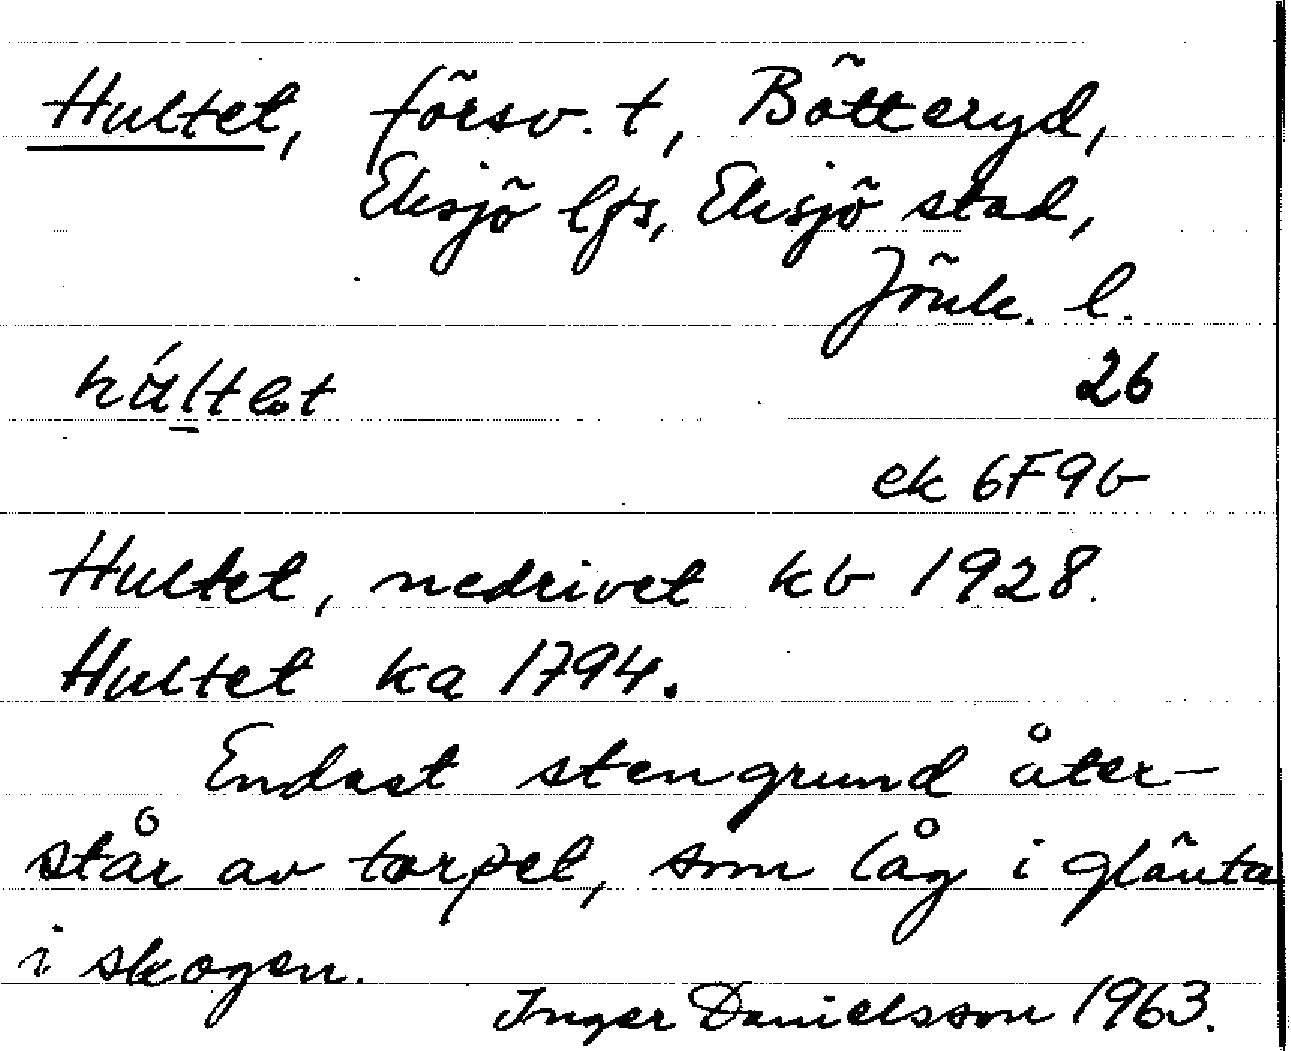 Hultet, försv. t, Bötteryd,
Eksjö lfs, Eksjö stad,
Jönk. l.
26
ek 6F9b
Hultet, nedrivet kb 1928.
Hultet ka 1794.
Endast stengrund åter-
står av torpet, som låg i glänta
i skogen.
Inger Danielsson 1963.